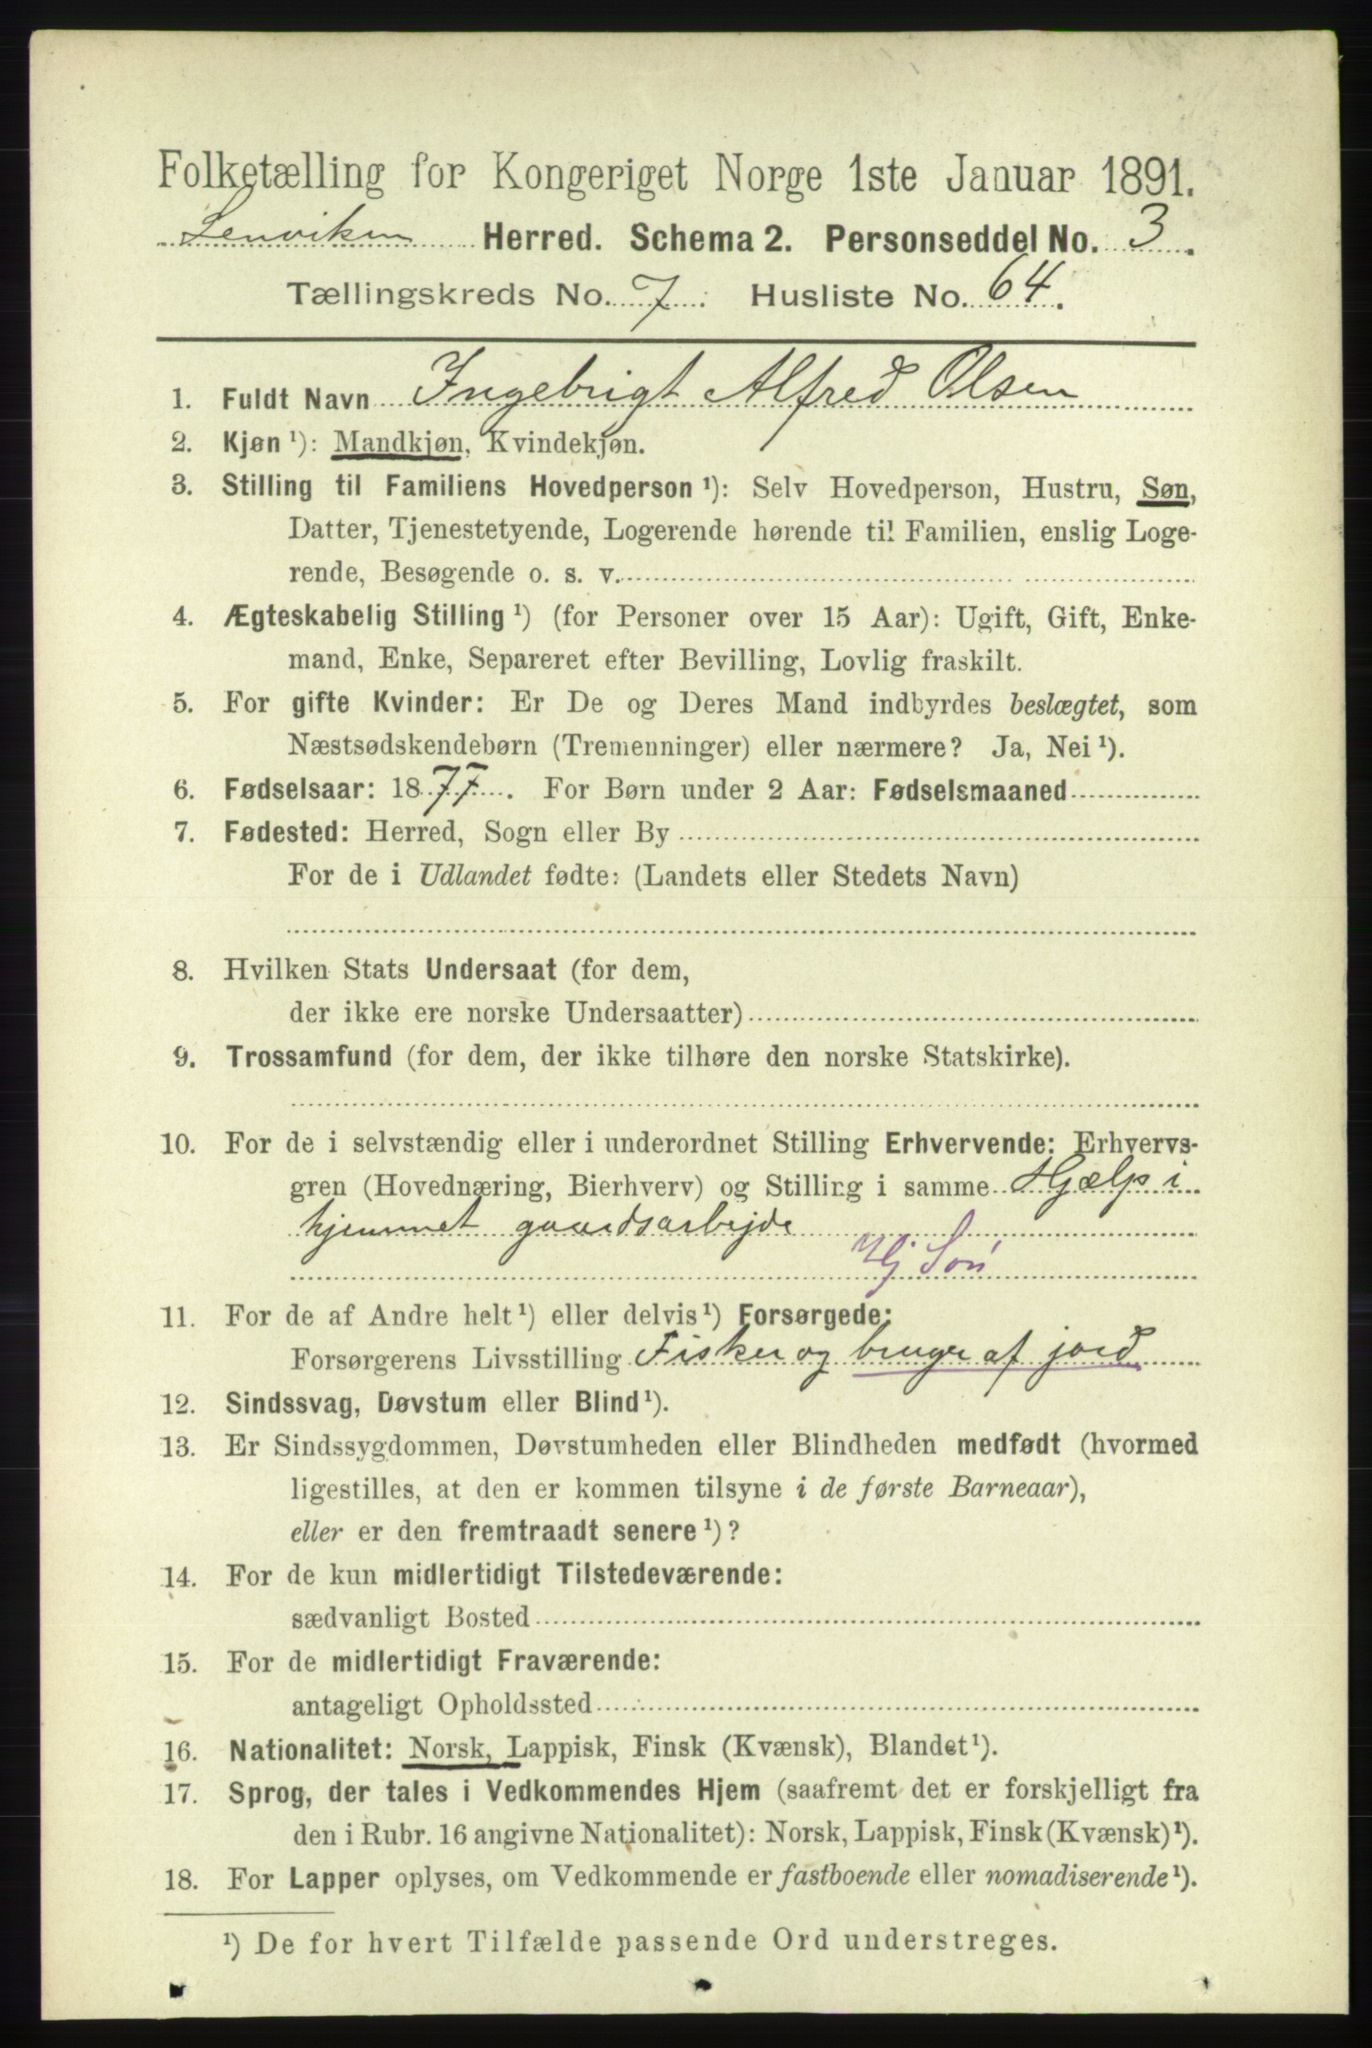 Folketælling for Kongeriget Norge 1ste Januar 1891.
Lenviken Herred. Schema 2. Personseddel No. 3.
Tællingskreds No. 7. Husliste No. 64.
1. Fuldt Navn Ingebrigt Alfred Olsen
2. Kjøn ¹): Mandkjøn, Kvindekjøn.
3. Stilling til Familiens Hovedperson ¹): Selv Hovedperson, Hustru, Søn,
Datter, Tjenestetyende, Logerende hørende til Familien, enslig Loge-
rende, Besøgende o. s. v.
4. Ægteskabelig Stilling ¹) (for Personer over 15 Aar): Ugift, Gift, Enke-
mand, Enke, Separeret efter Bevilling, Lovlig fraskilt.
5. For gifte Kvinder: Er De og Deres Mand indbyrdes beslægtet, som
Næstsødskendebørn (Tremenninger) eller nærmere? Ja, Nei ¹).
6. Fødselsaar: 1877. For Børn under 2 Aar: Fødselsmaaned
7. Fødested: Herred, Sogn eller By
For de i Udlandet fødte: (Landets eller Stedets Navn)
8. Hvilken Stats Undersaat (for dem,
der ikke ere norske Undersaatter)
9. Trossamfund (for dem, der ikke tilhøre den norske Statskirke).
10. For de i selvstændig eller i underordnet Stilling Erhvervende: Erhvervs-
gren (Hovednæring, Bierhverv) og Stilling i samme Hjælp i
hjemmet gaardsarbejde
Hj Søn
11. For de af Andre helt ¹) eller delvis ¹) Forsørgede:
Forsørgerens Livsstilling Fisker og bruger af jord
12. Sindssvag, Døvstum eller Blind ¹).
13. Er Sindssygdommen, Døvstumheden eller Blindheden medfødt (hvormed
ligestilles, at den er kommen tilsyne i de første Barneaar),
eller er den fremtraadt senere ¹)?
14. For de kun midlertidigt Tilstedeværende:
sædvanligt Bosted
15. For de midlertidigt Fraværende:
antageligt Opholdssted
16. Nationalitet: Norsk, Lappisk, Finsk (Kvænsk), Blandet ¹).
17. Sprog, der tales i Vedkommendes Hjem (saafremt det er forskjelligt fra
den i Rubr. 16 angivne Nationalitet): Norsk, Lappisk, Finsk (Kvænsk) ¹).
18. For Lapper oplyses, om Vedkommende er fastboende eller nomadiserende ¹).
¹) De for hvert Tilfælde passende Ord understreges.